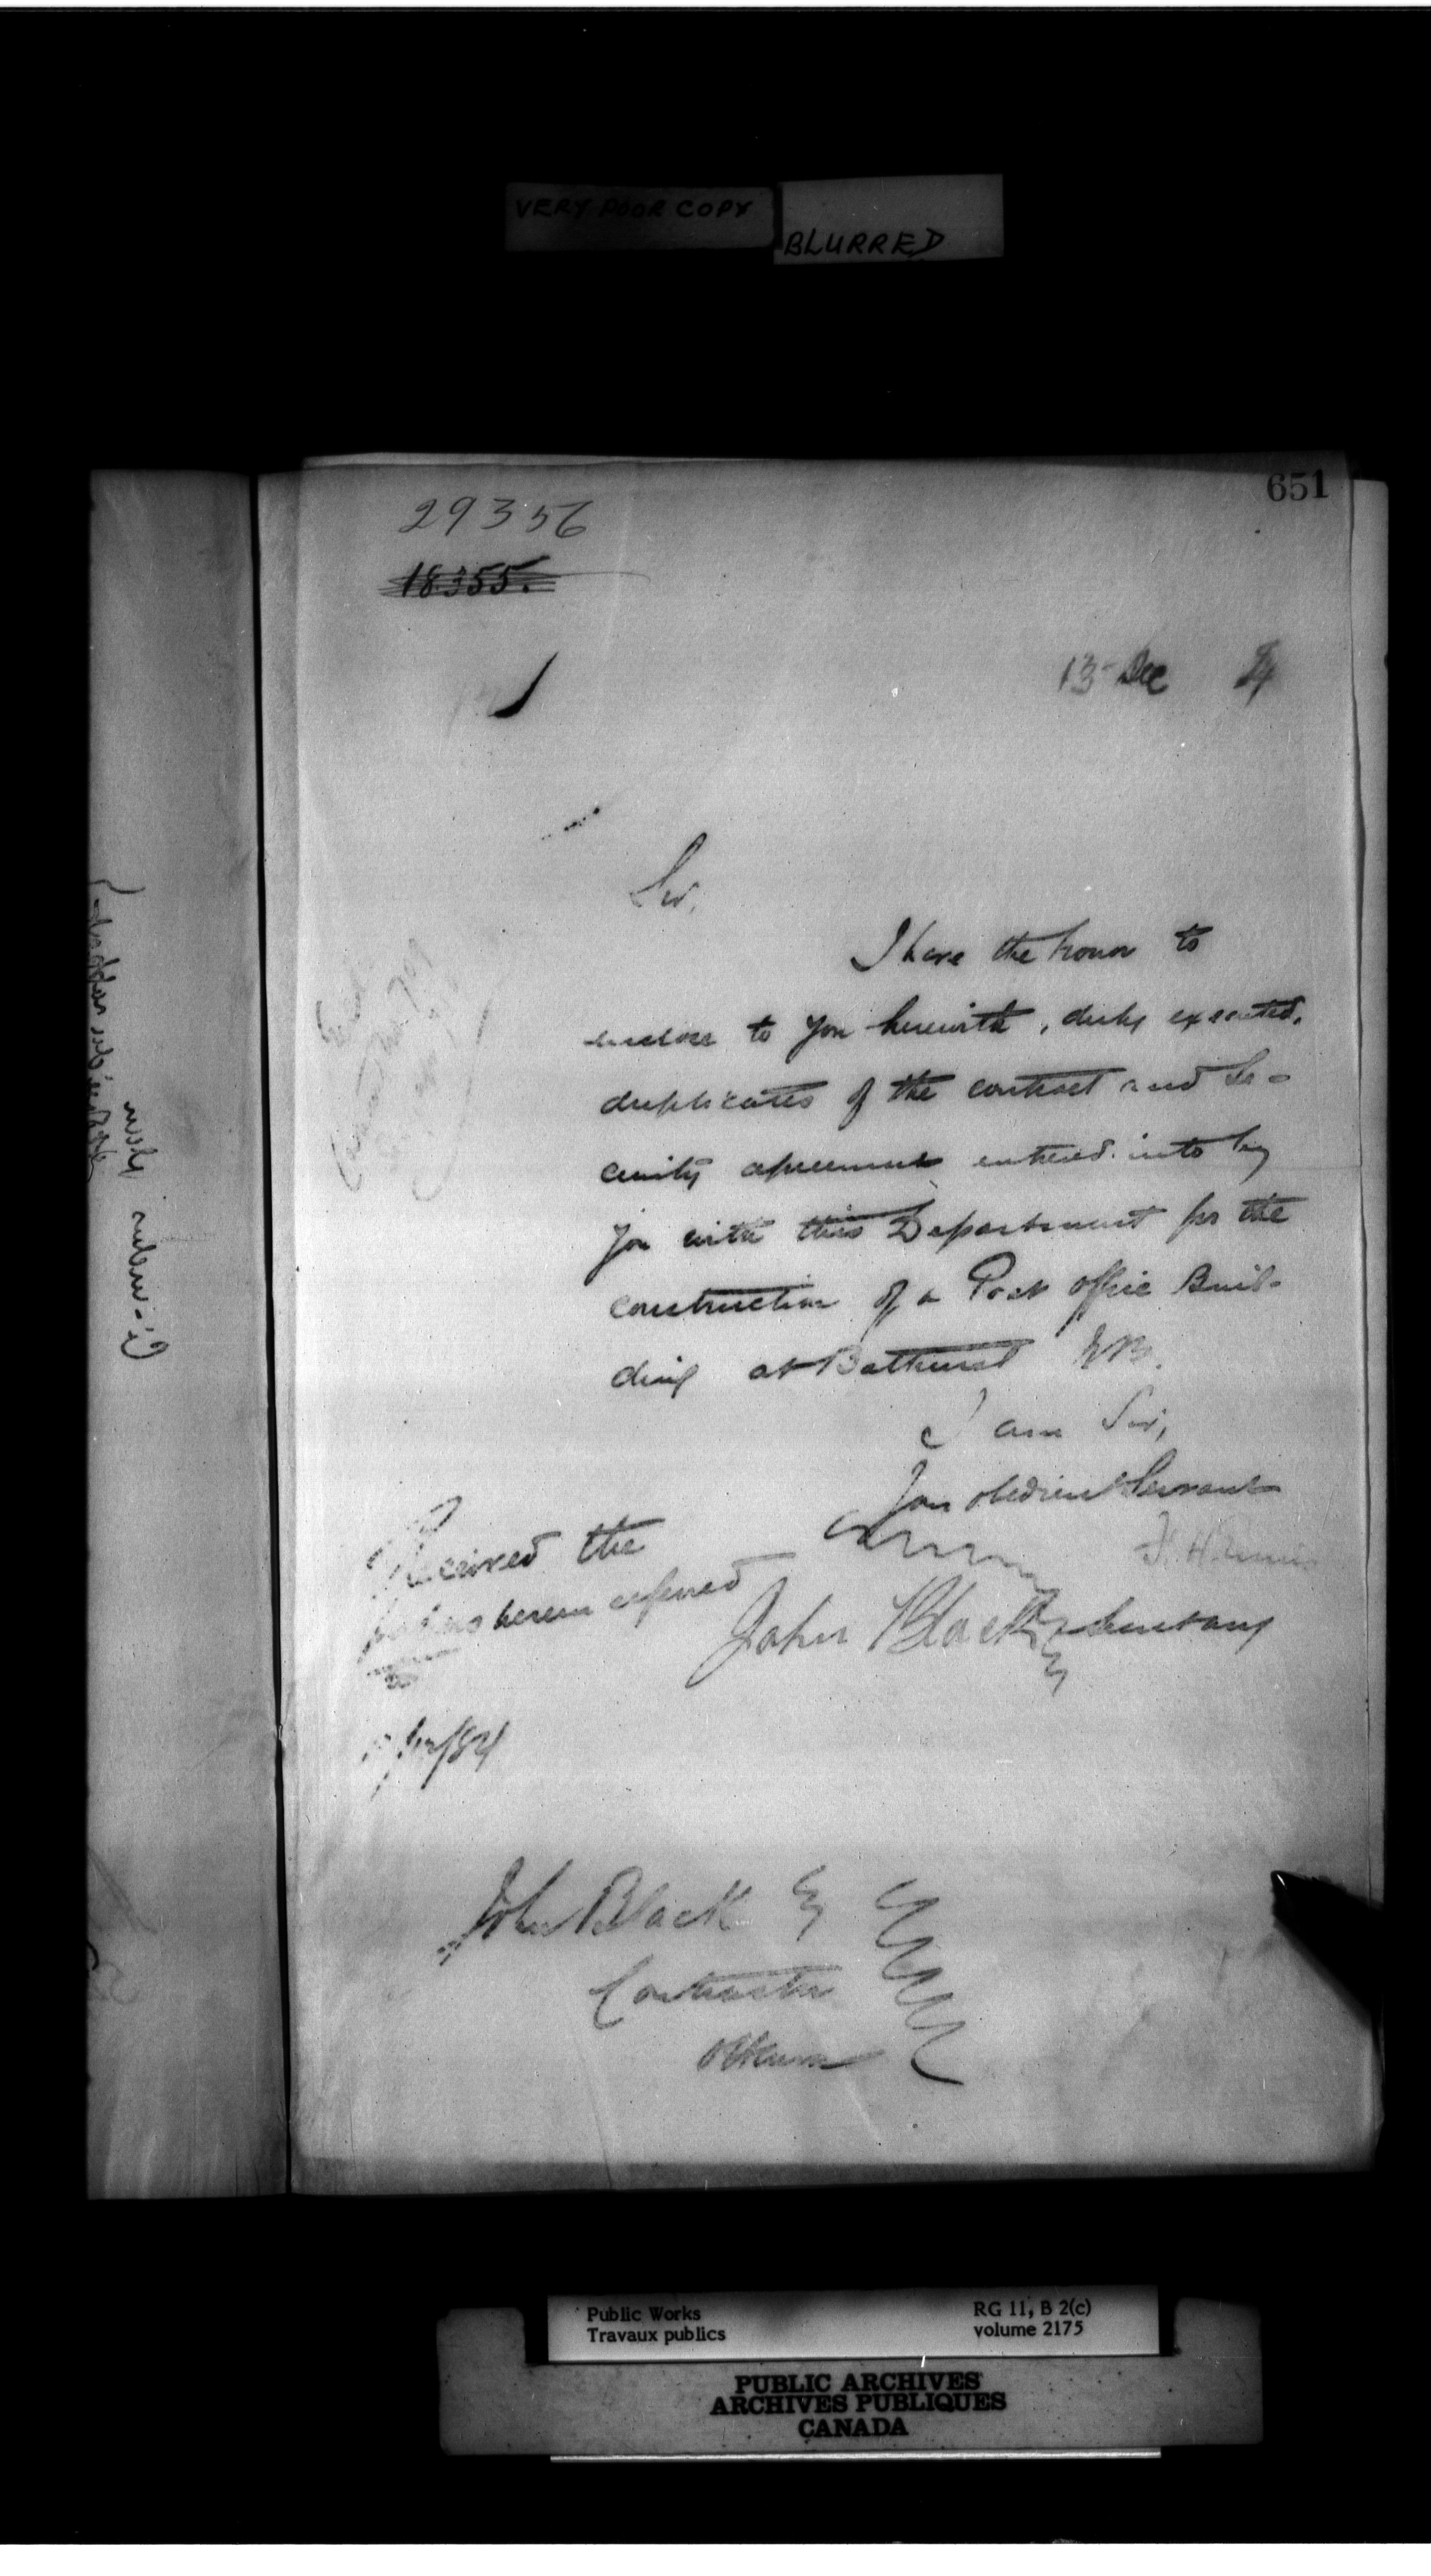 VERY POOR COPY
BLURRED
651
29356
18355.
13 Dec 84
Sir,
I have the honor to
enclose to you herewith, duly executed,
duplicates of the contract and Se-
curity agreement entered into by
you with this Department for the
construction of a Post Office Buil-
ding at Bathurst N.B.
I am Sir,
Your obedient Servant
F. H. Ennis
Secretary
Received the
papers herein referred
to
John Black
/84
John Black Esq
Contractor
Ottawa
Public Works
Travaux publics
RG 11, B 2(c)
volume 2175
PUBLIC ARCHIVES
ARCHIVES PUBLIQUES
CANADA